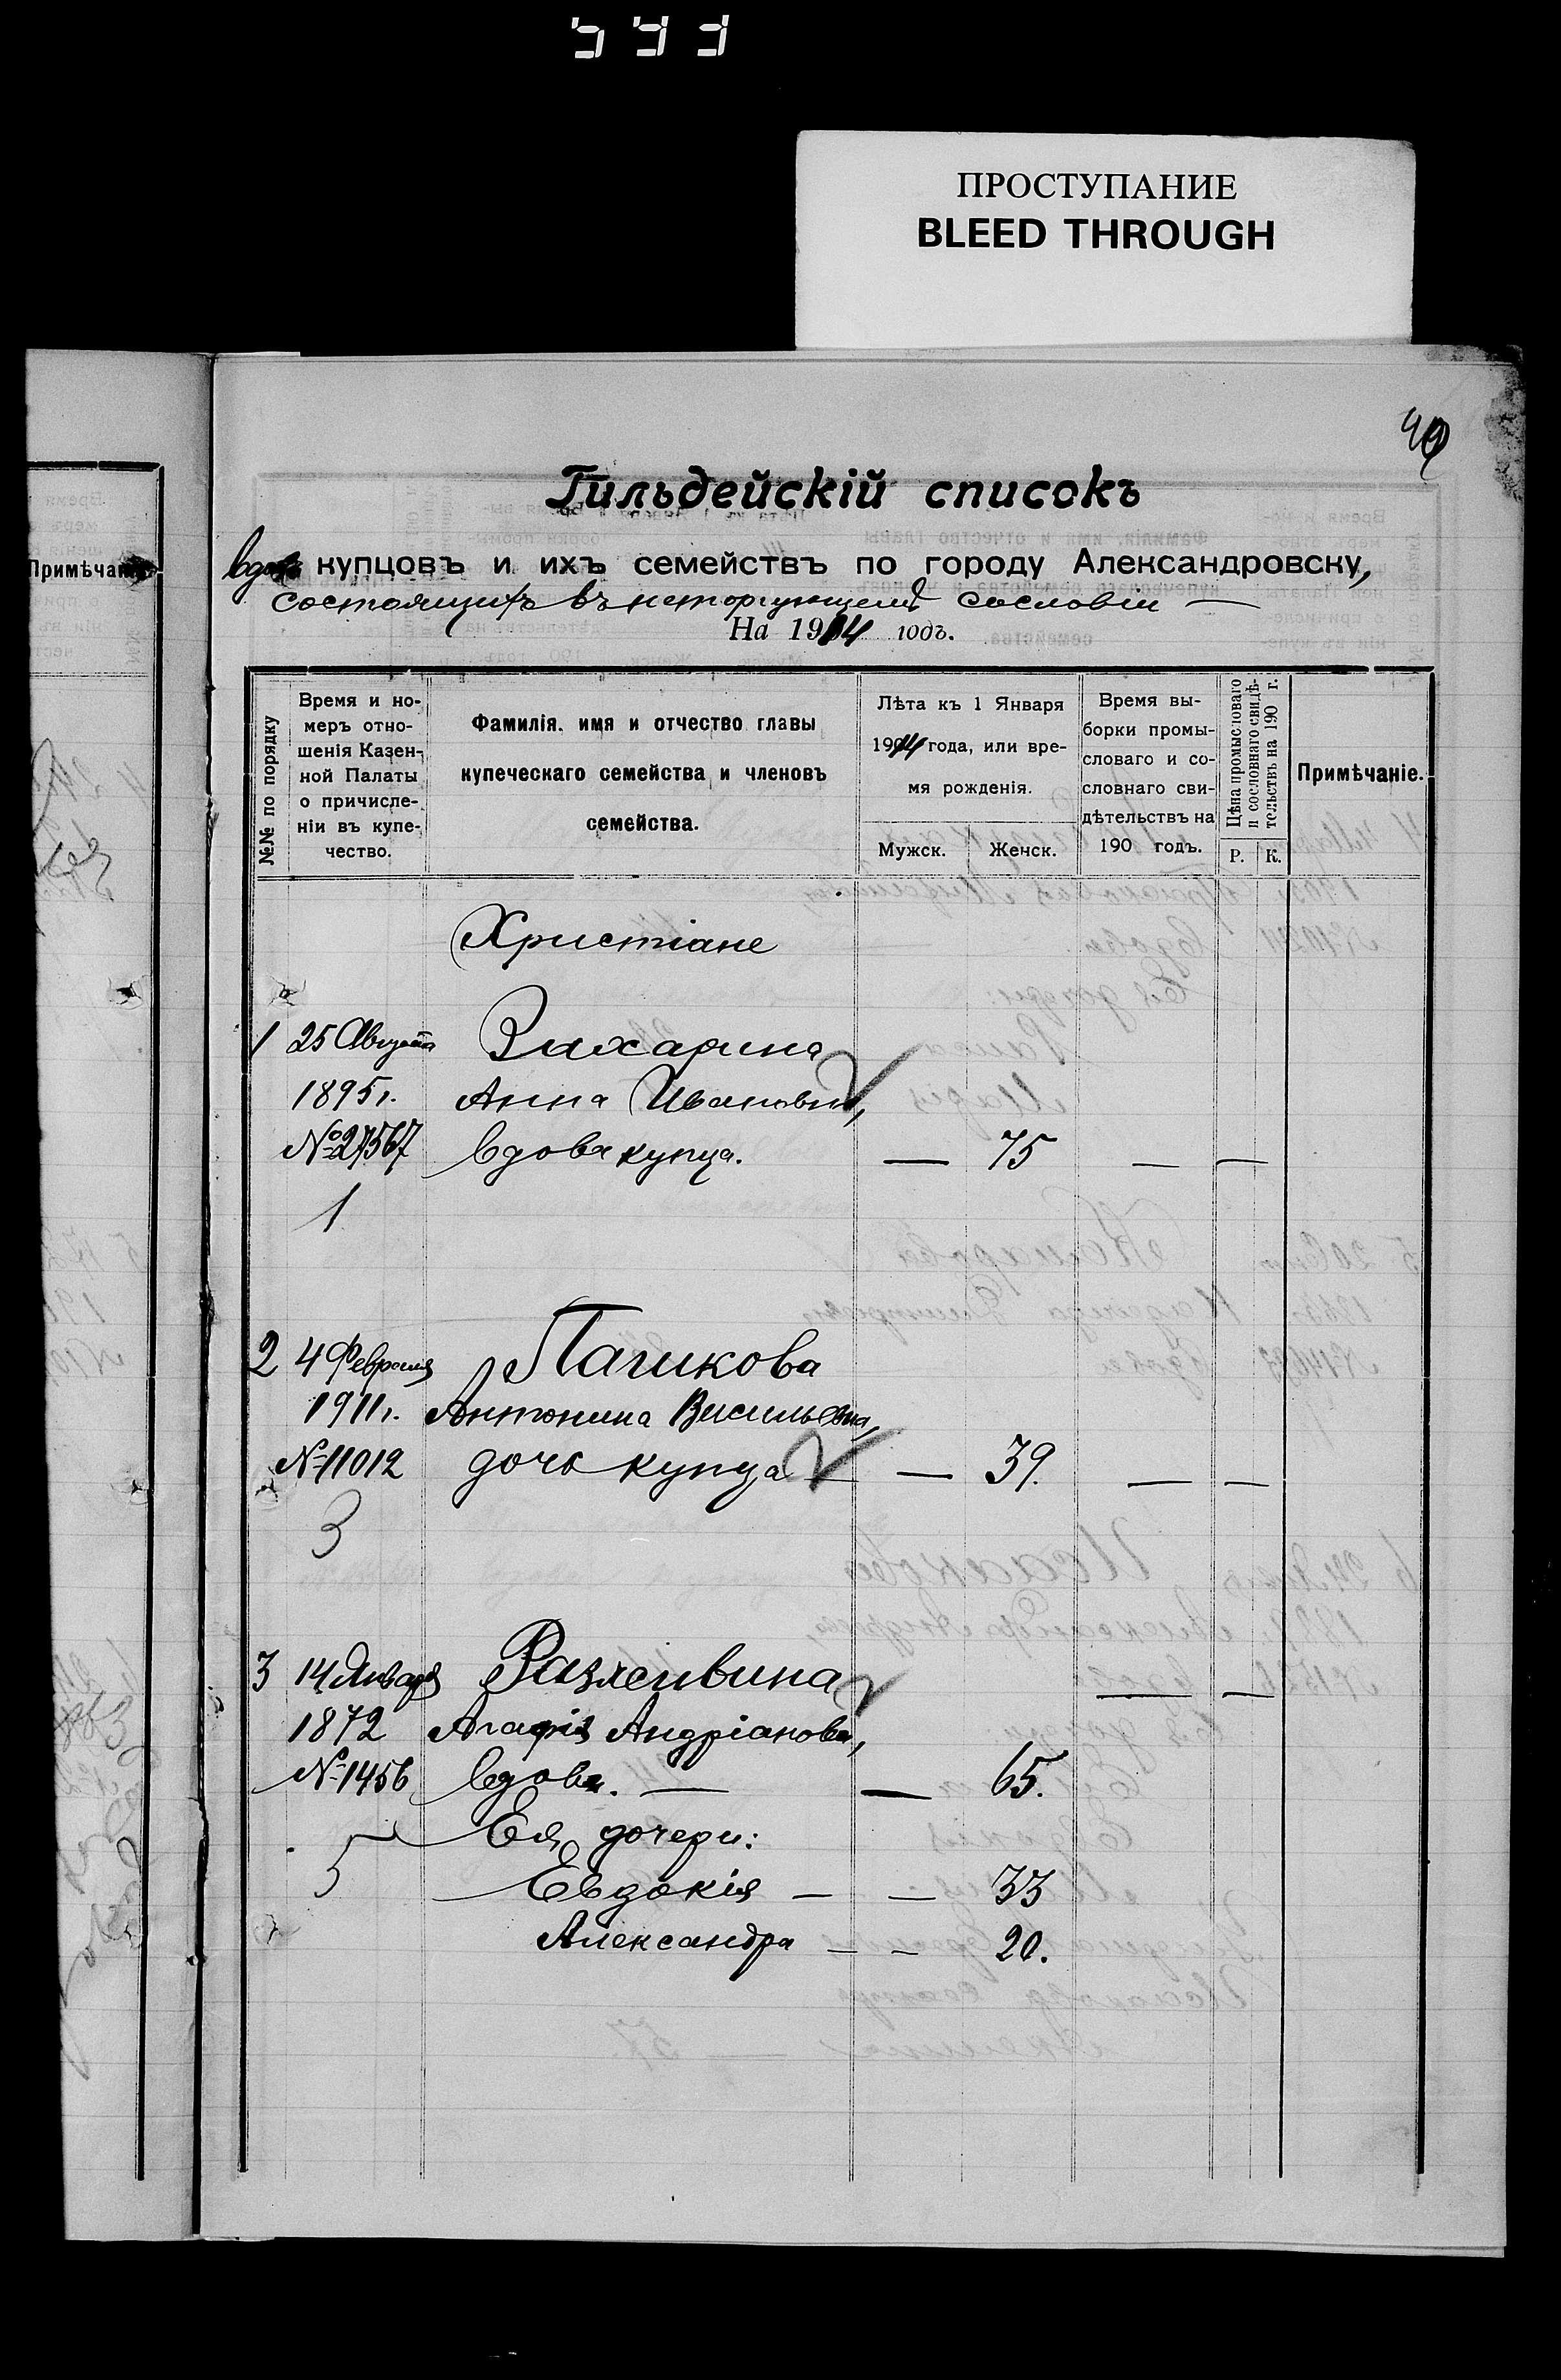 ПРОСТУПАНИЕ
BLEED THROUGH
Гильдейскій списокъ
вдовъ купцовъ и ихъ семействъ по городу Александровску,
состоящихъ въ неторгующемъ сословіи —
На 1914 годъ.
№№ по порядку
Время и но-
меръ отно-
шенія Казен-
ной Палаты
о причисле-
ніи въ купе-
чество.
Фамилія, имя и отчество главы
купеческаго семейства и членовъ
семейства.
Лѣта къ 1 Января
1914 года, или вре-
мя рожденія.
Мужск. Женск.
Время вы-
борки промы-
словаго и со-
словнаго сви-
дѣтельствъ на
190 годъ.
Цѣна промысловаго
и сословнаго свидѣ-
тельствъ на 190 г.
Р. К.
Примѣчаніе.
Христіане
1 25 Августа Захарина
1895 г. Анна Ивановна,
№ 27567 вдова купца. — 75 — —
1
2 4 Февраля
1911 г. Антонина Васильевна,
№ 11012 дочь купца — — 39. — —
3
3 14 Января — —
1872 Агафія Андріанова,
№ 1456 вдова. — — 65.
5 Ея дочери:
Евдокія — — 33
Александра — — 20.
Примѣчан